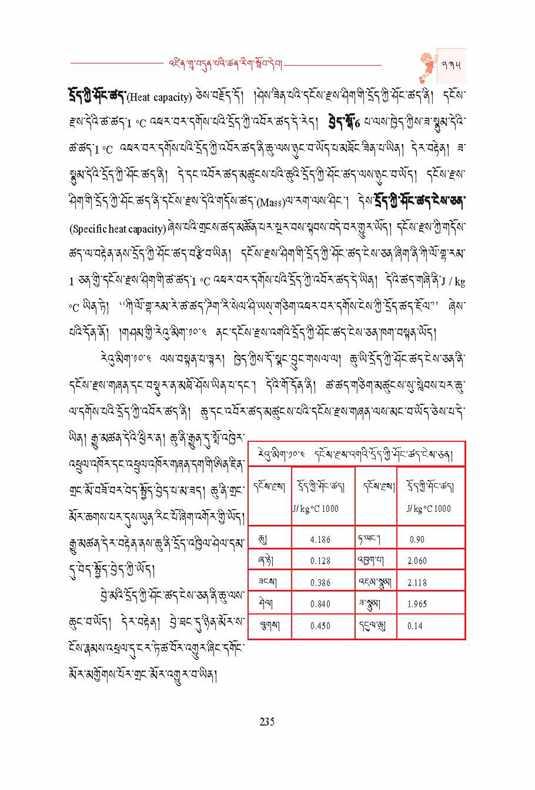 འཛིན་གྲྭ་བདུན་པའི་ཚན་རིག་སློབ་དེབ།
༢༣༥
དྲོད་ཀྱི་ཤོང་ཚད་(Heat capacity) ཅེས་བརྗོད་དོ། །ཤེས་ཟིན་པའི་དངོས་རྫས་ཤིག་གི་དྲོད་ཀྱི་ཤོང་ཚད་ནི། དངོས་
རྫས་དེའི་ཚ་ཚད་1 °C འཕར་བར་དགོས་པའི་དྲོད་ཀྱི་འབོར་ཚད་དེ་རེད། བྱེད་སྒོ6 པ་ལས་ཁྱེད་ཀྱིས་ཟ་སྣུམ་དེའི་
ཚ་ཚད་1 °C འཕར་བར་དགོས་པའི་དྲོད་ཀྱི་འབོར་ཚད་ནི་ཆུ་ལས་ཉུང་བ་ཡོད་པ་མཐོང་ཟིན་པ་ཡིན། དེར་བརྟེན། ཟ་
སྣུམ་དེའི་དྲོད་ཀྱི་ཤོང་ཚད་ནི། དེ་དང་འབོར་ཚད་མཚུངས་པའི་ཆུའི་དྲོད་ཀྱི་ཤོང་ཚད་ལས་ཉུང་བ་ཡོད། དངོས་རྫས་
ཤིག་གི་དྲོད་ཀྱི་ཤོང་ཚད་ནི་དངོས་རྫས་དེའི་གདོས་ཚད་(Mass)ལ་རག་ལས་ཤིང་། དེས་དྲོད་ཀྱི་ཤོང་ཚད་ངེས་ཅན་
(Specific heat capacity) ཞེས་པའི་གྲངས་ཚད་མཚོན་པར་སྔར་བས་སྟབས་བདེ་བར་གྱུར་ཡོད། དངོས་རྫས་ཀྱི་གདོས་
ཚད་ལ་བརྟེན་ནས་དྲོད་ཀྱི་ཤོང་ཚད་བརྩི་བ་ཡིན། དངོས་རྫས་ཤིག་གི་དྲོད་ཀྱི་ཤོང་ཚད་ངེས་ཅན་ཞིག་ནི་ཀི་ལོ་གྲྭ་རམ་
1 ཅན་གྱི་དངོས་རྫས་ཤིག་གི་ཚ་ཚད་1 °C འཕར་བར་དགོས་པའི་དྲོད་ཀྱི་འབོར་ཚད་དེ་ཡིན། དེའི་ཚད་གཞི་ནི་J / kg
°C ཡིན་ཏེ། “ཀི་ལོ་གྲྭ་རམ་རེ་ཚ་ཚད་ཌིག་རི་སེལ་ཤི་ཡས་གཅིག་འཕར་བར་དགོས་ངེས་ཀྱི་དྲོད་ཚད་ཇོལ་” ཞེས་
པའི་དོན་ནོ། །གཤམ་གྱི་རེའུ་མིག་༡༠་༤ ནང་དངོས་རྫས་འགའི་དྲོད་ཀྱི་ཤོང་ཚད་ངེས་ཅན་ཁག་བསྟན་ཡོད།
རེའུ་མིག་༡༠་༤ ལས་བསྟན་པ་ལྟར། ཁྱེད་ཀྱིས་དོ་སྣང་བྱུང་གསལ་ལ། ཆུ་ཡི་དྲོད་ཀྱི་ཤོང་ཚད་ངེས་ཅན་ནི་
དངོས་རྫས་གཞན་དང་བསྡུར་ན་མཐོ་ཤོས་ཡིན་པ་དང་། དེའི་གོ་དོན་ནི། ཚ་ཚད་གཅིག་མཚུངས་སུ་སླེབས་པར་ཆུ་
ལ་དགོས་པའི་དྲོད་ཀྱི་འབོར་ཚད་ནི། ཆུ་དང་འབོར་ཚད་མཚུངས་པའི་དངོས་རྫས་གཞན་ལས་མང་བ་ཡོད་ཅེས་པ་དེ་
ཡིན། རྒྱུ་མཚན་དེའི་ཕྱིར་ན། ཆུ་ནི་རྒྱུན་དུ་སྣོ་འཁྱེར་
འཕྲུལ་འཁོར་དང་འཕྲུལ་འཁོར་གཞན་དག་གི་ཨིན་ཇིན་
གྲང་མོ་བཟོ་བར་བེད་སྤྱོད་བྱེད་པ་མ་ཟད། ཆུ་ནི་གྲང་
མོར་ཆགས་པར་དུས་ཡུན་རིང་པོ་ཞིག་འགོར་གྱི་ཡོད།
རྒྱུ་མཚན་དེར་བརྟེན་ནས་ཆུ་ནི་དྲོད་འཁྱིལ་ཤེལ་དམ་
དུ་བེད་སྤྱོད་བྱེད་ཀྱི་ཡོད།
བྱེ་མའི་དྲོད་ཀྱི་ཤོང་ཚད་ངེས་ཅན་ནི་ཆུ་ལས་
ཆུང་བ་ཡོད། དེར་བརྟེན། བྱེ་ཐང་དུ་ཉིན་མོར་ས་
ངོས་རྣམས་འཕྲལ་དུ་དྲ་ཏེ་ཚ་པོར་འགྱུར་ཞིང་དགོང་
མོར་མགྱོགས་པོར་གྲང་མོར་འགྱུར་བ་ཡིན།
རེའུ་མིག་༡༠་༤ དངོས་རྫས་འགའི་དྲོད་ཀྱི་ཤོང་ཚད་ངེས་ཅན།
དངོས་རྫས། དྲོད་ཀྱི་ཤོང་ཚད། J/ kg °C 1000 དངོས་རྫས། དྲོད་ཀྱི་ཤོང་ཚད། J/ kg °C 1000
ཆུ། 4.186 ཧ་ཡང་། 0.90
ཞ་ཉེ། 0.128 འཁྱག་པ། 2.060
ཟངས། 0.386 འཇམ་སྣུམ། 2.118
ཤེལ། 0.840 ཟ་སྣུམ། 1.965
ལྕགས། 0.450 དངུལ་ཆུ། 0.14
235